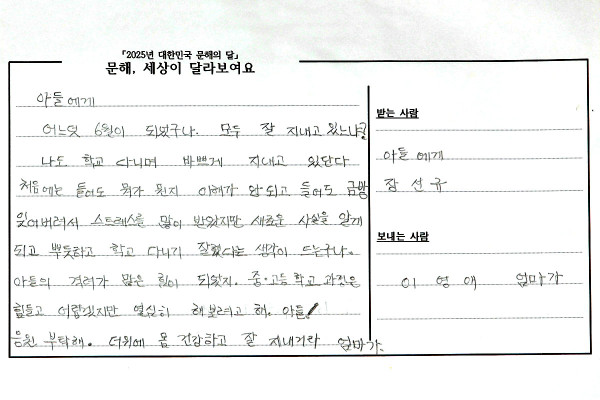 「2025년 대한민국 문해의 달」
문해, 세상이 달라보여요
아들에게
어느덧 6월이 되었구나. 모두 잘 지내고 있느냐
나도 학교 다니며 바쁘게 지내고 있단다
처음에는 들어도 뭐가 뭔지 이해가 안되고 들어도 금방
잊어버려서 스트레스를 많이 받았지만 새로운 사실을 알게
되고 뿌듯하고 학교 다니기 잘했다는 생각이 드는구나.
아들의 격려가 많은 힘이 되었지. 중·고등학교 과정은
힘들고 어렵겠지만 열심히 해보려고 해. 아들!
응원 부탁해. 더위에 몸 건강하고 잘 지내거라 엄마가.
받는 사람
아들에게
장선규
보내는 사람
이영애 엄마가